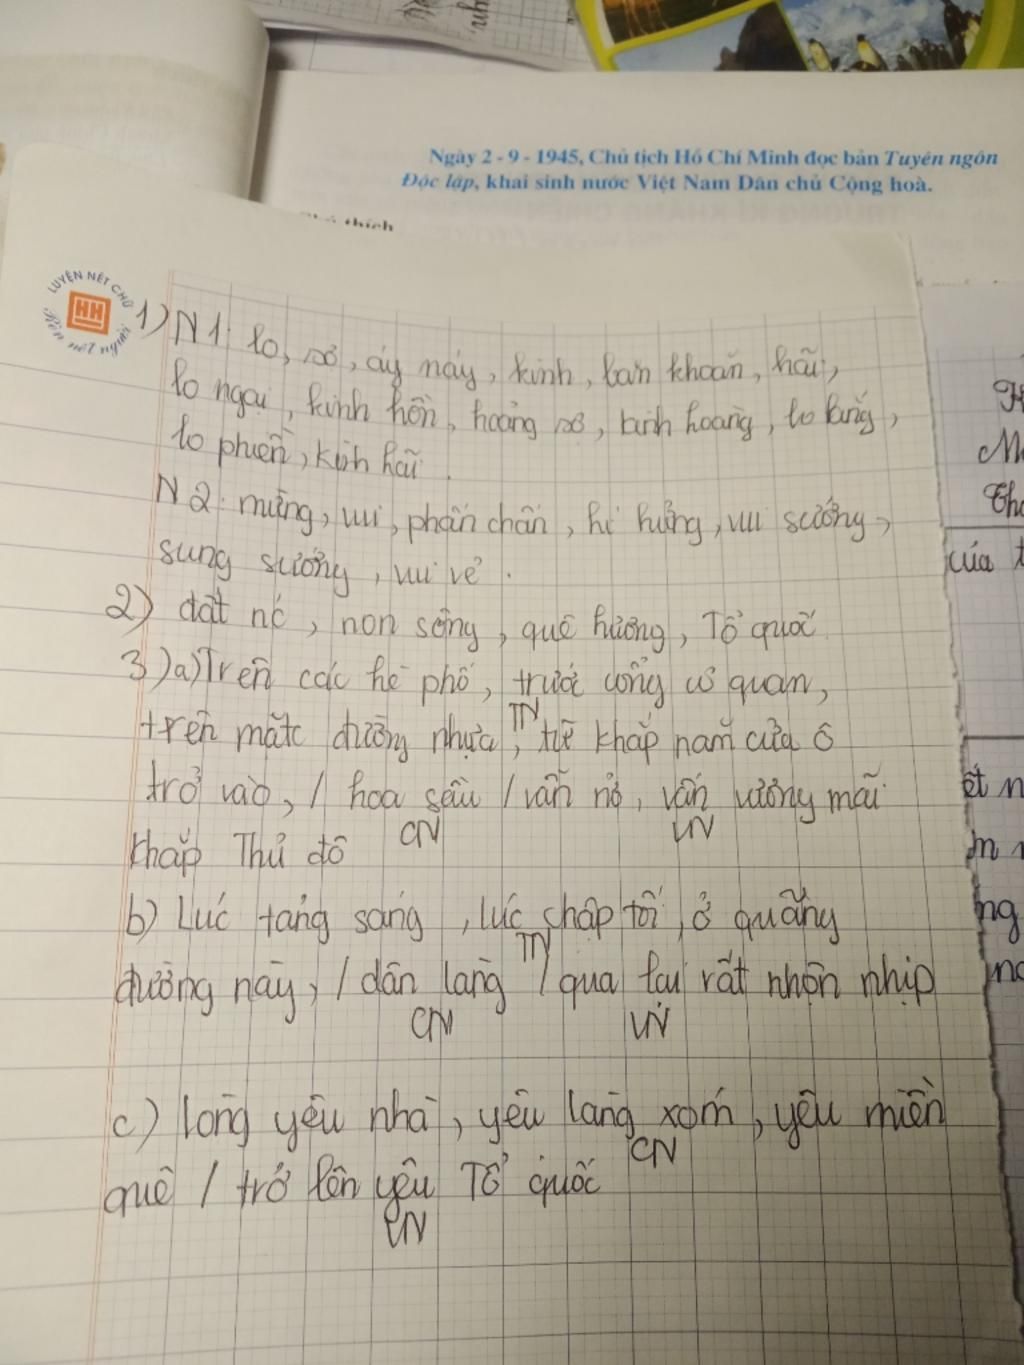 Ngày 2 - 9 - 1945, Chủ tịch Hồ Chí Minh đọc bản Tuyên ngôn
Độc lập, khai sinh nước Việt Nam Dân chủ Cộng hoà.
thích
LUYỆN NÉT CHỮ
HH
Rèn nết người
1) N1: lo, sợ, áy náy, kinh, băn khoăn, hãi,
lo ngại, kinh hồn, hoảng sợ, kinh hoàng, lo lắng,
lo phiền, kinh hãi.
N2: mừng, vui, phấn chấn, hí hửng, vui sướng,
sung sướng, vui vẻ.
2) đất nc, non sông, quê hương, Tổ quốc
3) a) Trên các hè phố, trước cổng cơ quan,
trên mặt đường nhựa, từ khắp năm cửa ô
TN
trở vào, / hoa sấu / vẫn nở, vẫn vương mãi
CN VN
khắp Thủ đô
b) Lúc tảng sáng, lúc chập tối, ở quãng
TN
đường này, / dân làng / qua lại rất nhộn nhịp
CN VN
c) lòng yêu nhà, yêu làng xóm, yêu miền
CN
quê / trở lên yêu Tổ quốc
VN
của
ết